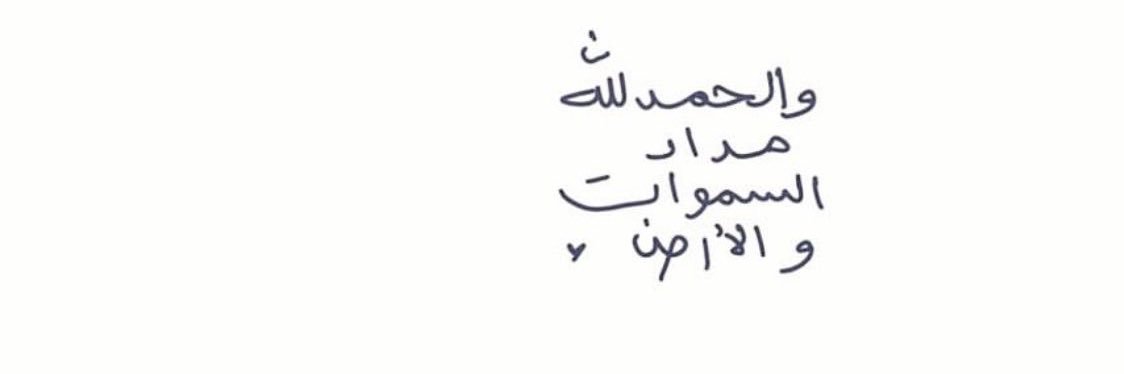 والحمدلله
مداد
السموات
و الأرض